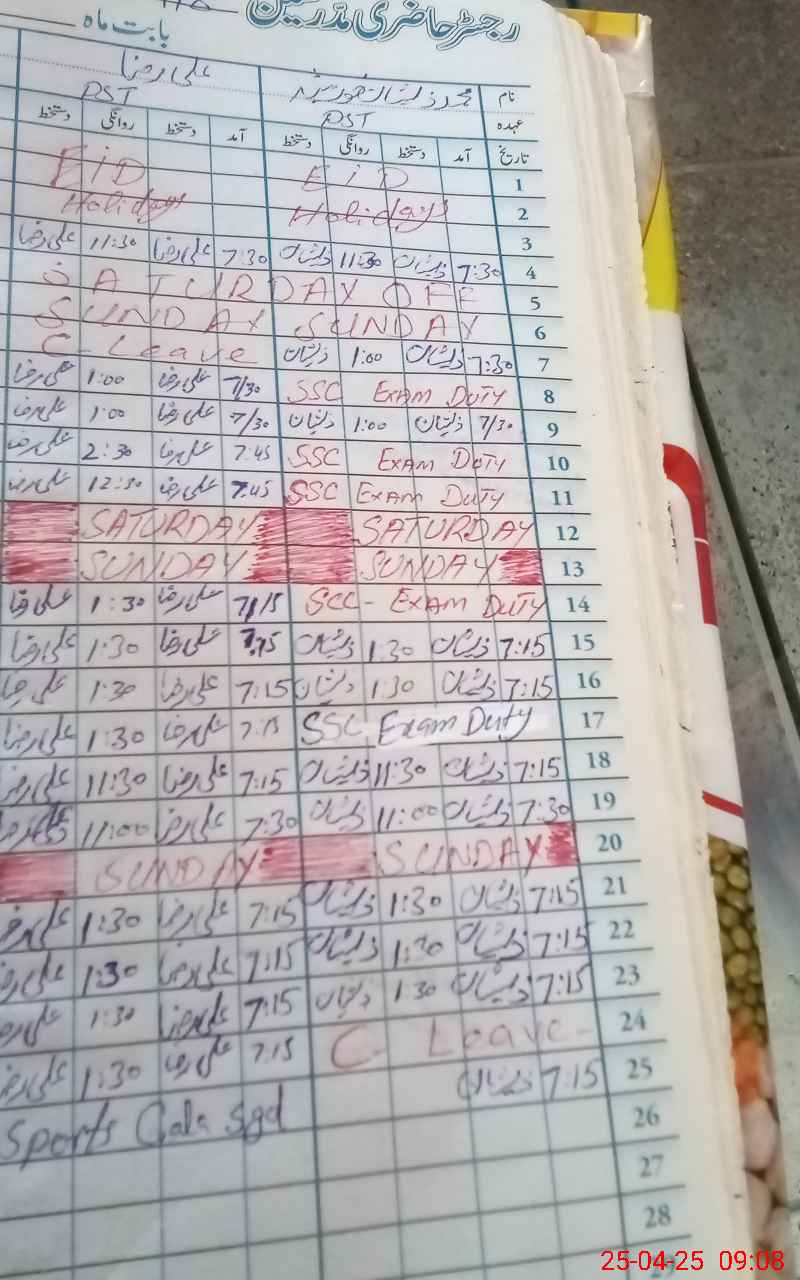 رجسٹر حاضری مدرسین بابت ماہ
نام محمد ذیشان علی رضا
عہدہ PST PST
تاریخ آمد دستخط روانگی دستخط آمد دستخط روانگی دستخط
1 EiD EiD
2 Holidays Holidays
3
4 7:30 ذیشان 11:30 ذیشان 7:30 علی رضا 11:30 علی رضا
5 SATURDAY OFF
6 SUNDAY SUNDAY
7 7:30 ذیشان 1:00 ذیشان C-Leave
8 SSC Exam Duty 7/30 علی رضا 1:00 علی رضا
9 7/30 ذیشان 1:00 ذیشان 7/30 علی رضا 1:00 علی رضا
10 SSC Exam Duty 7:45 علی رضا 2:30 علی رضا
11 SSC Exam Duty 7:45 علی رضا 12:30 علی رضا
12 SATURDAY SATURDAY
13 SUNDAY SUNDAY
14 SCC - Exam Duty 7:15 علی رضا 1:30 علی رضا
15 7:15 ذیشان 1:30 ذیشان 7:15 علی رضا 1:30 علی رضا
16 7:15 ذیشان 1:30 ذیشان 7:15 علی رضا 1:30 علی رضا
17 SSC Exam Duty 7:15 علی رضا 1:30 علی رضا
18 7:15 ذیشان 11:30 ذیشان 7:15 علی رضا 11:30 علی رضا
19 7:30 ذیشان 11:00 ذیشان 7:30 علی رضا 11:00 علی رضا
20 SUNDAY SUNDAY
21 7:15 ذیشان 1:30 ذیشان 7:15 علی رضا 1:30 علی رضا
22 7:15 ذیشان 1:30 ذیشان 7:15 علی رضا 1:30 علی رضا
23 7:15 ذیشان 1:30 ذیشان 7:15 علی رضا 1:30 علی رضا
24 C-Leave- 7:15 علی رضا 1:30 علی رضا
25 7:15 ذیشان Sports Gala Sgd
26
27
28
25-04-25 09:08